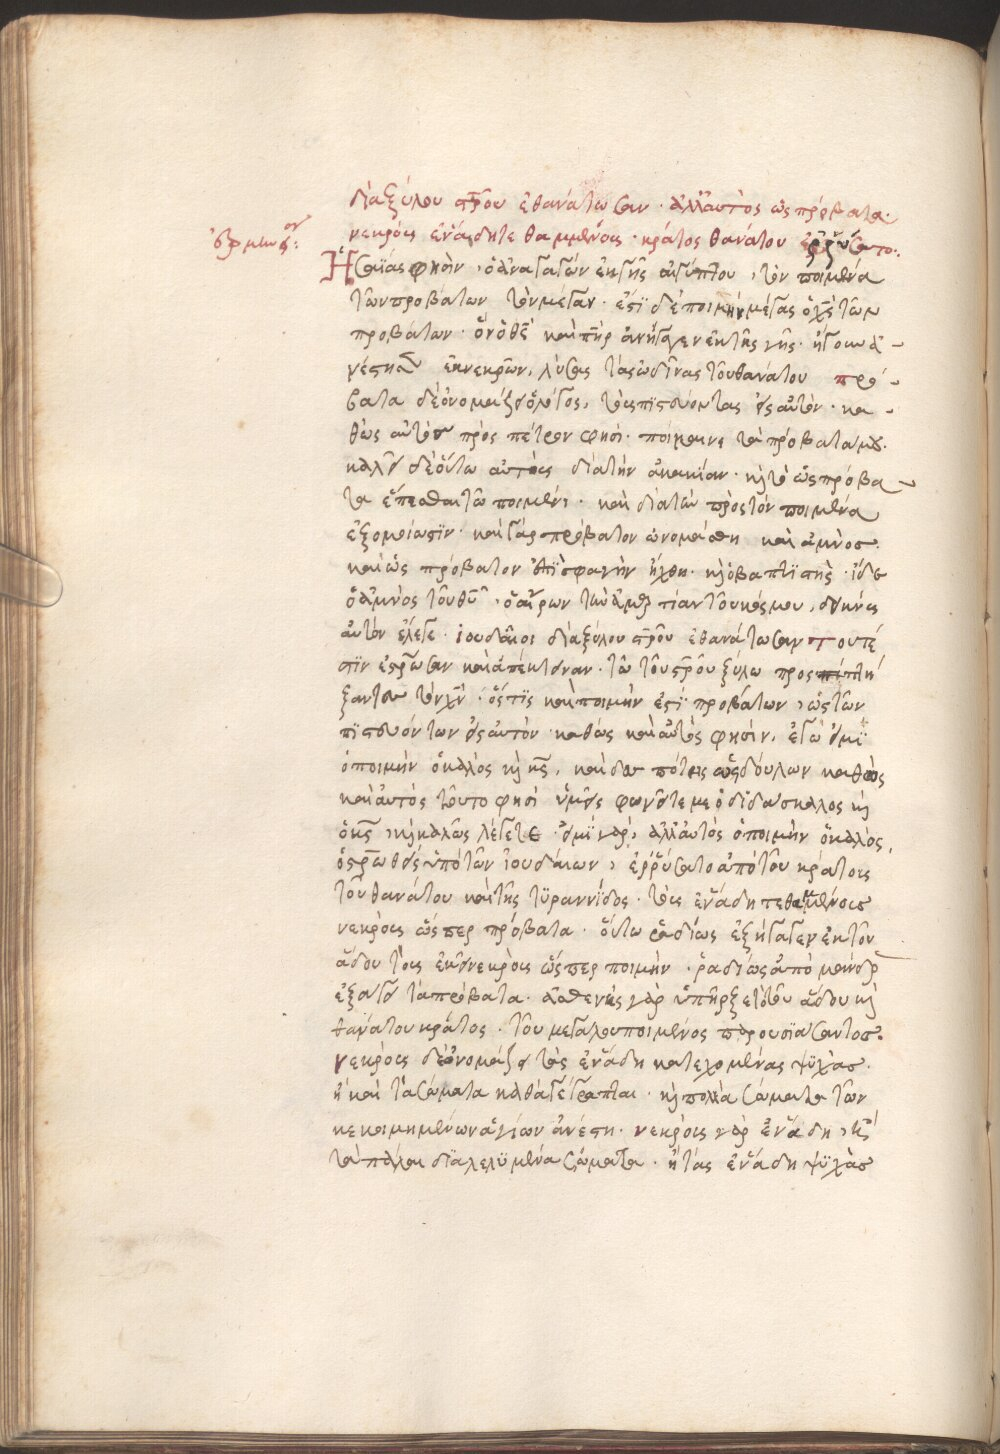 διὰ ξύλου στροῦ ἐθανάτωσαν · ἀλλ' αὐτὸς ὡς πρόβατα ·
νεκροὺς ἐν ἅδῃ τεθαμμένους · κράτος θανάτου ἐρρύσατο :
Ἡσαΐας φησὶν, ὁ ἀναγαγὼν ἐκ γῆς αἰγύπτου, τὸν ποιμένα
τῶν προβάτων τὸν μέγαν · ἐστὶ δὲ ποιμὴν μέγας ὁ χς τῶν
προβάτων · ὃν ὁ θς καὶ πηρ ἀνήγαγεν ἐκ τῆς γῆς · ἤγουν ἀ-
νέστησεν ἐκ νεκρῶν, λύσας τὰς ὠδῖνας τοῦ θανάτου πρό-
βατα δὲ ὀνομάζει ὁ λόγος, τοὺς πιστεύοντας εἰς αὐτὸν · κα-
θὼς αὐτὸς πρὸς πέτρον φησί · ποίμαινε τὰ πρόβατά μου ·
καλεῖ δὲ οὕτω αὐτοὺς διὰ τὴν ἀκακίαν · καὶ τὸ ὡς πρόβα-
τα ἕπεσθαι τῶ ποιμένι · καὶ διὰ τὴν πρὸς τὸν ποιμένα
ἐξομοίωσιν · καὶ γὰρ πρόβατον ὠνομάσθη καὶ ἀμνὸς ·
καὶ ὡς πρόβατον ἐπὶ σφαγὴν ἤχθη · καὶ ὁ βαπτιστὴς · ἴδε
ὁ ἀμνὸς τοῦ θυ, ὁ αἴρων τὴν ἁμαρτίαν τοῦ κόσμου, δεικνὺς
αὐτὸν ἔλεγε · ἰουδαῖοι διὰ ξύλου στροῦ ἐθανάτωσαν τουτέ
στιν ἐσρωσαν καὶ ἀπέκτειναν · τῶ τοῦ στροῦ ξύλω προσπή
ξαντες τὸν χν · ὅστις καὶ ποιμήν ἐστι προβάτων, ὡς τῶν
πιστευόντων εἰς αὐτὸν καθὼς καὶ αὐτὸς φησὶν, ἐγώ εἰμι
ὁ ποιμὴν ὁ καλὸς καὶ κς, καὶ δεσπότης ὡς δούλων καθὼς
καὶ αὐτὸς τοῦτο φησὶ ὑμεῖς φωνεῖτέ με ὁ διδάσκαλος καὶ
ὁ κς, καὶ καλῶς λέγετε · εἰμὶ γάρ, ἀλλ' αὐτὸς ὁ ποιμὴν ὁ καλὸς,
ὁ σρωθεὶς ὑπὸ τῶν ἰουδαίων, ἐρρύσατο ἀπὸ τοῦ κράτους
τοῦ θανάτου καὶ τῆς τυραννίδος · τοὺς ἐν ἅδη τεθαμμένους
νεκροὺς ὥσπερ πρόβατα · οὕτω ῥαδίως ἐξήγαγεν ἐκ τοῦ
ἅδου τοὺς ἐκεῖ νεκροὺς ὥσπερ ποιμὴν · ῥαδίως ἀπὸ μάνδρας
ἐξάγει τὰ πρόβατα · ἀσθενὲς γὰρ ὑπῆρξε τὸ τοῦ ἅδου καὶ
θανάτου κράτος · τοῦ μεγάλου ποιμένος παρουσιάσαντος ·
νεκροὺς δὲ ὀνομάζει τὰς ἐν ἅδη κατεχομένας ψυχὰς ·
ἢ καὶ τὰ σώματα καθὰ γέγραπται · καὶ πολλὰ σώματα τῶν
κεκοιμημένων ἁγίων ἀνέστη · νεκροὺς γὰρ ἐν ἅδη,
τὰ πάλαι διαλελυμένα σώματα · ἢ τὰς ἐν ἅδη ψυχὰς